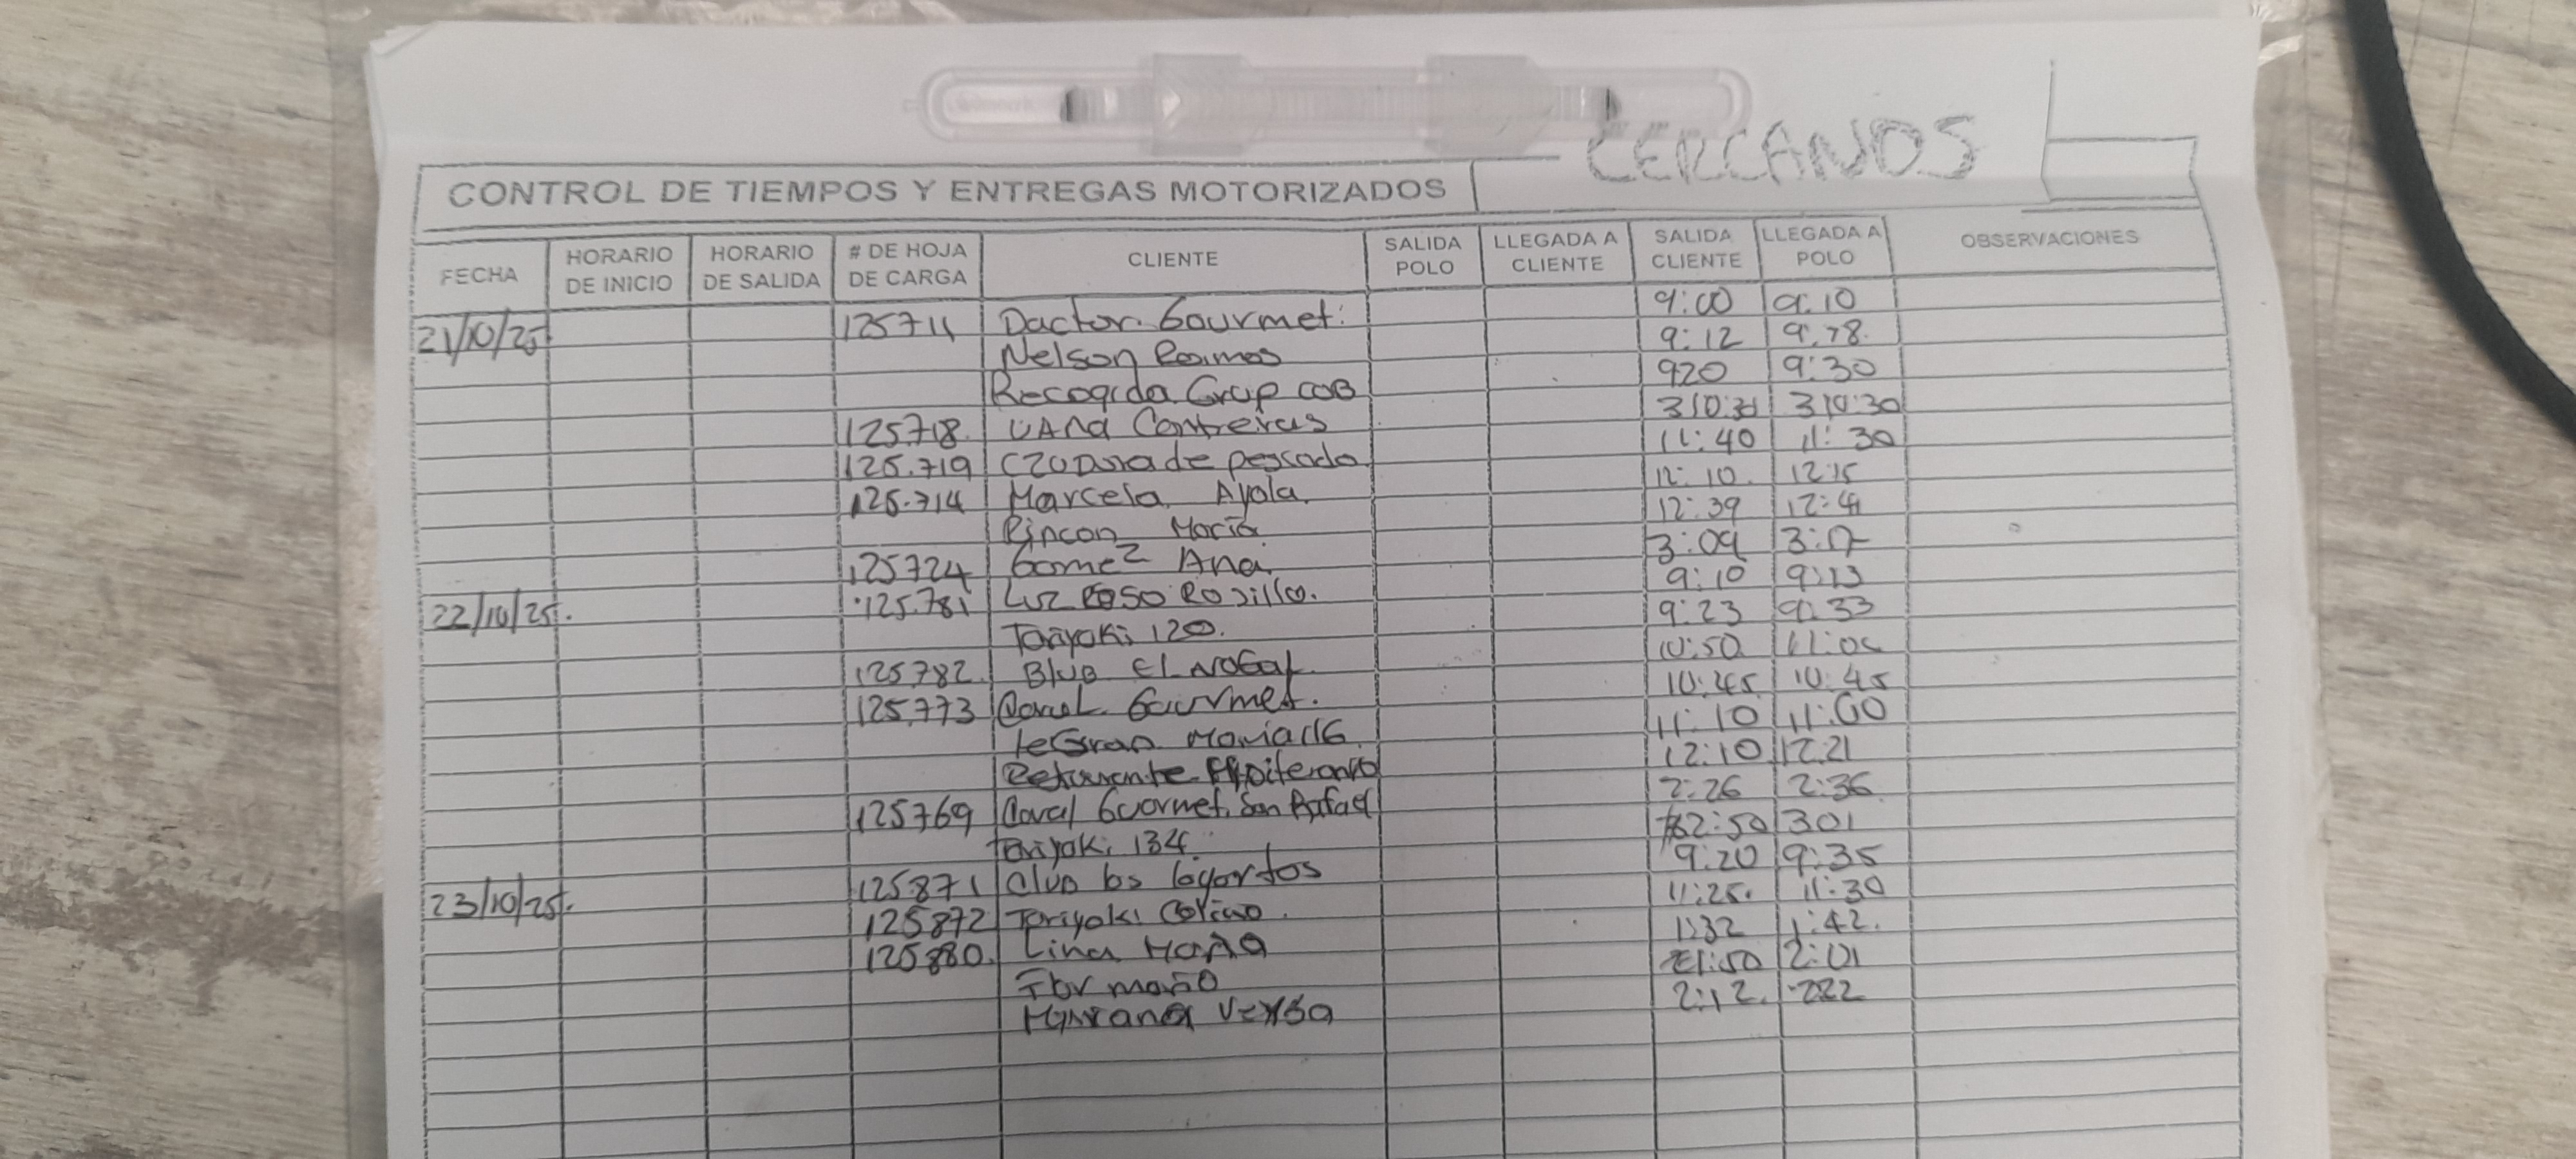 CERCANOS
CONTROL DE TIEMPOS Y ENTREGAS MOTORIZADOS
FECHA HORARIO DE INICIO HORARIO DE SALIDA # DE HOJA DE CARGA CLIENTE SALIDA POLO LLEGADA A CLIENTE SALIDA CLIENTE LLEGADA A POLO OBSERVACIONES
21/10/25 125711 Doctor. Gourmet: 9:00 9:10
Nelson Ramos 9:12
Recogida Grup COB 920 9:30
125718. Contreras
125.719 de pescado 11:40 11:30
125.714 Marcela Ayola. 12:10. 12:15
Rincon Maria 12:39
125724 Gomez Ana. 3:09
22/10/25. 125.781 Luz 9:10 9:13
Toriyaki 120. 9:23 9:33
125782. Blub El Nogal. 10:50
125.773 Gourmet. 10:45 10:45
11:10 11:00
12:10 12:21
125769 Gourmet. San Rafael 2:26 2:36
Toriyaki 134 2:50 301
23/10/25. 125871 Club los lagartos 9:20 9:35
125872 Toriyaki Colina. 11:25. 11:30
125880. Lina 1:32 1:42.
Flor 1:50 2:01
2:12. 222